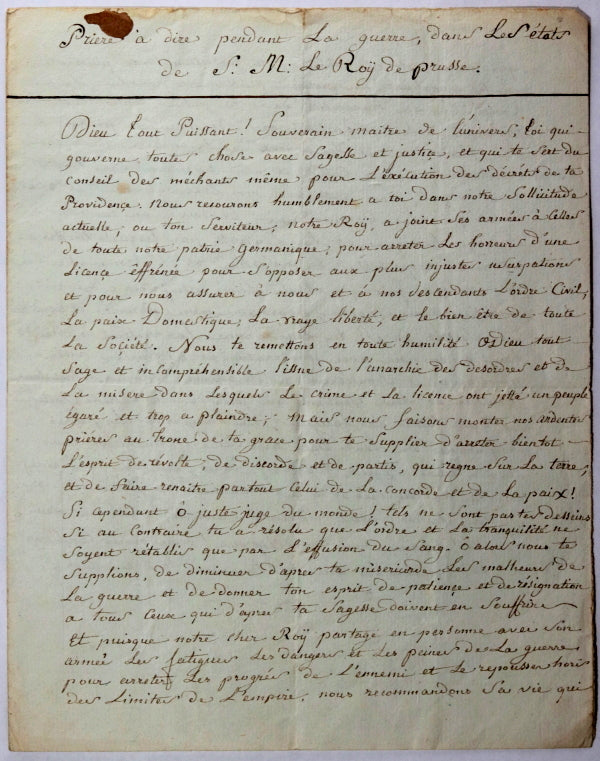 Priere à dire pendant La guerre, dans Les états
de S: M: Le Roÿ de prusse.
Dieu tout Puissant! Souverain maitre de L'univers, toi qui
gouverne toutes chose avec Sagesse et justiçe, et qui te sert du
Conseil des méchants même pour L'éxécution des décréts de ta
Providence. Nous recourons humblement a toi dans notre Sollicitude
actuelle, ou ton Serviteur, notre Roÿ, a joint Ses armées à Celles
de toute notre patrie Germanique; pour arreter Les horreurs d'une
Licençe éffrénée pour S'opposer aux plus injustes usurpations
et pour nous assurer à nous et à nos descendants L'ordre Civil,
La paix Domestique, La vraye liberté, et le bien être de toute
La Soçiété. Nous te remettons en toute humilité O dieu tout
Sage et incompréhensible L'issue de L'anarchie des desordres et de
La misere dans Lesquels Le crime et La licence ont jetté un peuple
égaré et trop a plaindre; Mais nous faisons monter nos ardentes
prières au trone de ta grace pour te Supplier d'arreter bientot
L'esprit de révolte, de discorde et de partis, qui regne Sur La terre,
et de faire renaitre partout celui de La concorde et de La paix!
Si cependant ô juste juge du monde! tels ne Sont pas tes desseins
Si au Contraire tu a résolu que L'ordre et La tranquilité ne
Soyent rétablis que par L'effusion du Sang. Ô alors nous te
Supplions, de diminuer d'apres ta misericorde Les malheurs de
La guerre et de donner ton esprit de patience et de résignation
a tous Ceux qui d'apres ta Sagesse doivent en Souffrir
Et puisque notre cher Roÿ partage en personne avec Son
armée Les fatigues Les dangers et Les peines de La guerre
pour arreter Les progrés de L'ennemi et Le repousser hors
des Limites de L'empire, nous recommandons Sa vie qui